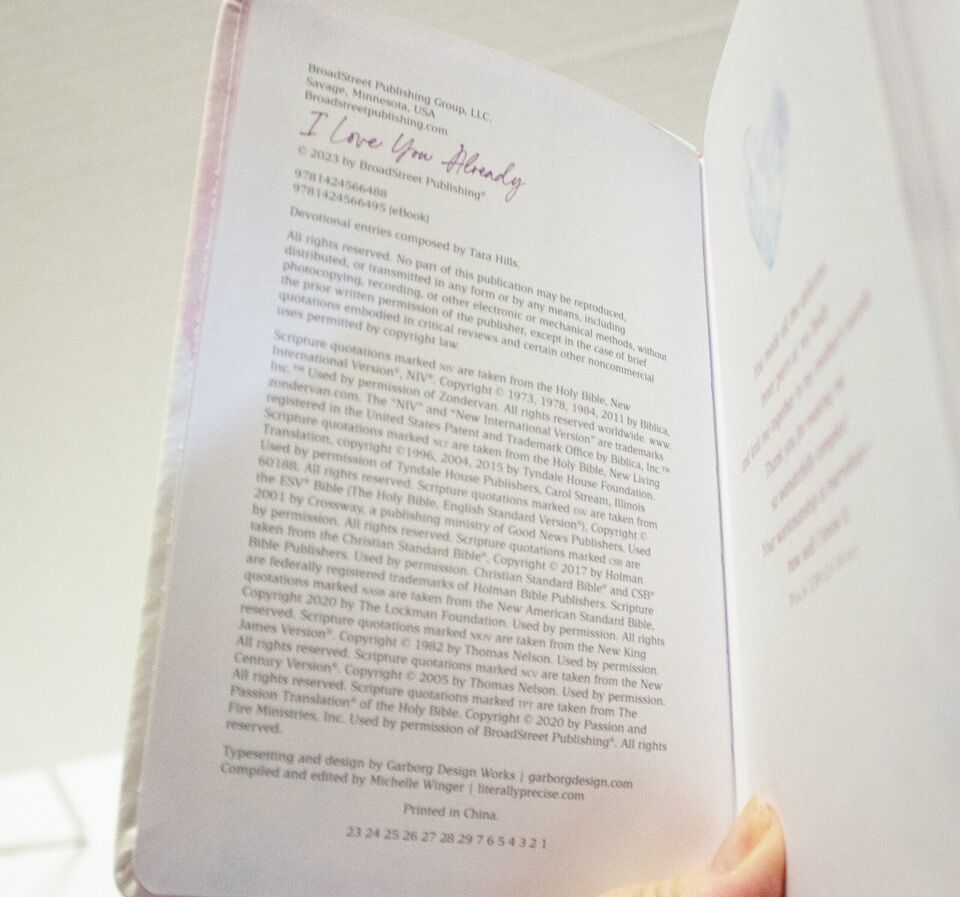 BroadStreet Publishing Group, LLC.
Savage, Minnesota, USA
Broadstreetpublishing.com
I Love You Already
© 2023 by BroadStreet Publishing®
9781424566488
9781424566495 (eBook)
Devotional entries composed by Tara Hills.
All rights reserved. No part of this publication may be reproduced,
distributed, or transmitted in any form or by any means, including
photocopying, recording, or other electronic or mechanical methods, without
the prior written permission of the publisher, except in the case of brief
quotations embodied in critical reviews and certain other noncommercial
uses permitted by copyright law.
Scripture quotations marked NIV are taken from the Holy Bible, New
International Version®, NIV®. Copyright © 1973, 1978, 1984, 2011 by Biblica,
Inc.™ Used by permission of Zondervan. All rights reserved worldwide. www.
zondervan.com. The "NIV" and "New International Version" are trademarks
registered in the United States Patent and Trademark Office by Biblica, Inc.™
Scripture quotations marked NLT are taken from the Holy Bible, New Living
Translation, copyright ©1996, 2004, 2015 by Tyndale House Foundation.
Used by permission of Tyndale House Publishers, Carol Stream, Illinois
60188. All rights reserved. Scripture quotations marked ESV are taken from
the ESV® Bible (The Holy Bible, English Standard Version®). Copyright ©
2001 by Crossway, a publishing ministry of Good News Publishers. Used
by permission. All rights reserved. Scripture quotations marked CSB are
taken from the Christian Standard Bible®, Copyright © 2017 by Holman
Bible Publishers. Used by permission. Christian Standard Bible® and CSB®
are federally registered trademarks of Holman Bible Publishers. Scripture
quotations marked NASB are taken from the New American Standard Bible,
Copyright 2020 by The Lockman Foundation. Used by permission. All rights
reserved. Scripture quotations marked NKJV are taken from the New King
James Version®. Copyright © 1982 by Thomas Nelson. Used by permission.
All rights reserved. Scripture quotations marked NCV are taken from the New
Century Version®. Copyright © 2005 by Thomas Nelson. Used by permission.
All rights reserved. Scripture quotations marked TPT are taken from The
Passion Translation® of the Holy Bible. Copyright © 2020 by Passion and
Fire Ministries, Inc. Used by permission of BroadStreet Publishing®. All rights
reserved.
Typesetting and design by Garborg Design Works | garborgdesign.com
Compiled and edited by Michelle Winger | literallyprecise.com
Printed in China.
23 24 25 26 27 28 29 7 6 5 4 3 2 1
You made all the
and knit me together in my
Thank you for making me
so wonderfully complex!
Your workmanship is
how well I know it.